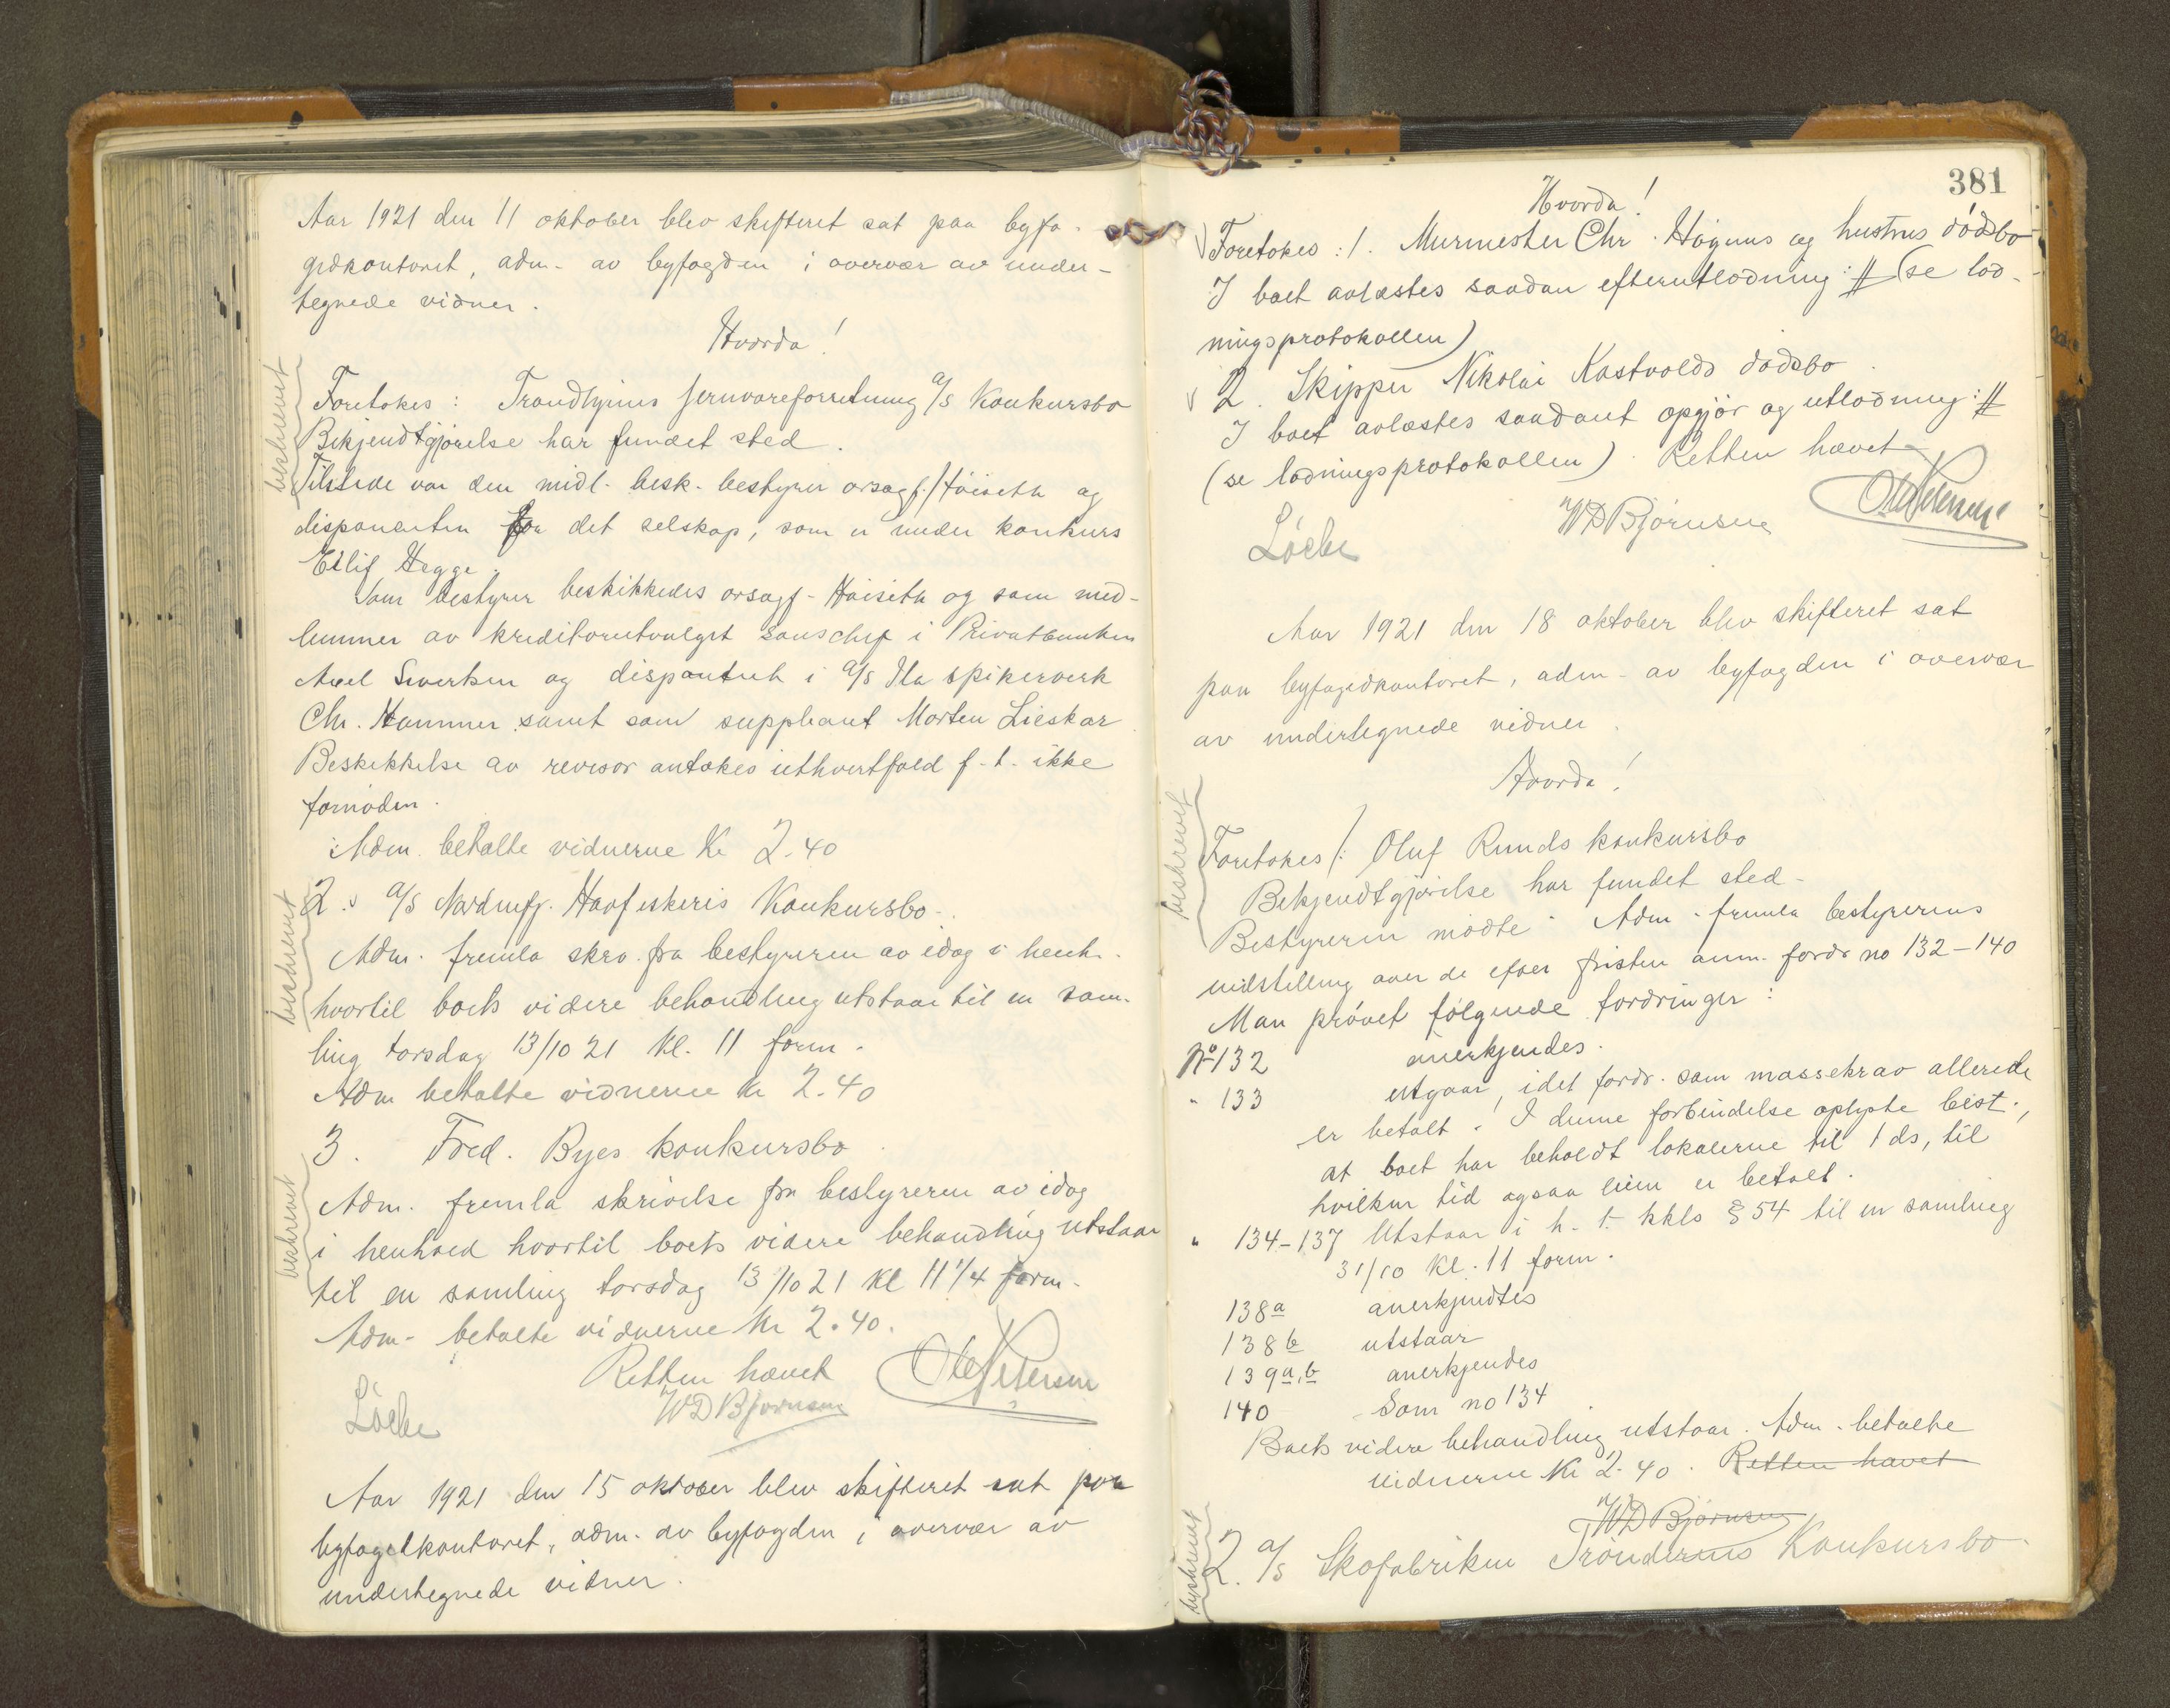 Aar 1921 den 11 oktober blev skifteret sat paa byfo-
gedkontoret, adm. av byfogden i overvær av under-
tegnede vidner.
Hvorda!
beskrevet
Foretokes: Trondhjems Jernvareforretning A/S Konkursbo
Bekjendtgjørelse har fundet sted.
Tilstede var den midl. besk. bestyrer orsagf. Høiseth og
disponenten for det selskap, som er under konkurs
Eilif Hegge.
Som bestyrer beskikkedes orsagf. Høiseth og som med-
lemmer av kreditorutvalget souschef i Privatbanken
Axel Sivertsen og disponent i A/S Ila spikerverk
Chr. Hammer samt som suppleant Morten Lieskar
Beskikkelse av revisor antokes iethvertfald f. t. ikke
fornøden.
Adm. betalte vidnerne Kr 2.40
beskrevet
2. A/S Nordenfj. Havfiskeris Konkursbo.
Adm. fremla skrv. fra bestyreren av idag i henh.
hvortil boets videre behandling utstaar til en sam-
ling torsdag 13/10 21 kl. 11 form.
Adm betalte vidnerne kr 2.40
beskrevet
3. Fred. Byes konkursbo
Adm. fremla skrivelse fra bestyreren av idag
i henhold hvortil boets videre behandling utstaar
til en samling torsdag 13/10 21 kl 11 1/4 form.
Adm. betalte vidnerne Kr 2.40.
Retten hævet
WD Bjørnsen
Petersen
Løcke
Aar 1921 den 15 oktober blev skifteret sat paa
byfogedkontoret, adm. av byfogden i overvær av
undertegnede vidner.
381
Hvorda!
Foretokes: 1. Murmester Chr. Høgnus og hustrus dødsbo
I boet avlæstes saadan efterutlodning: # (se lod-
ningsprotokollen)
2. Skipper Nikolai Kastvolds dødsbo
I boet avlæstes saadant opgjør og utlodning: #
(se lodningsprotokollen). Retten hævet
Løcke
WD Bjørnsen
Petersen
Aar 1921 den 18 oktober blev skifteret sat
paa byfogedkontoret, adm. av byfogden i overvær
av undertegnede vidner.
Hvorda!
beskrevet
Foretokes 1: Oluf Runds konkursbo
Bekjendtgjørelse har fundet sted.
Bestyreren mødte. Adm. fremla bestyrerens
indstilling over de efter fristen anm. fordr no 132-140
Man prøvet følgende fordringer:
No 132 anerkjendes.
" 133 utgaar, idet fordr. som massekrav allerede
er betalt. I denne forbindelse oplyste best.,
at boet har beholdt lokalerne til 1 ds, til
hvilken tid ogsaa leien er betalt.
" 134-137 Utstaar i h. t. kkls § 54 til en samling
31/10 kl. 11 form.
138a anerkjendtes
138b utstaar
139a,b anerkjendes
140 Som no 134
Boets videre behandling utstaar. Adm. betalte
vidnerne Kr 2.40. Retten hævet
WD Bjørnsen
beskrevet
2. A/S Skofabriken Trønderens Konkursbo